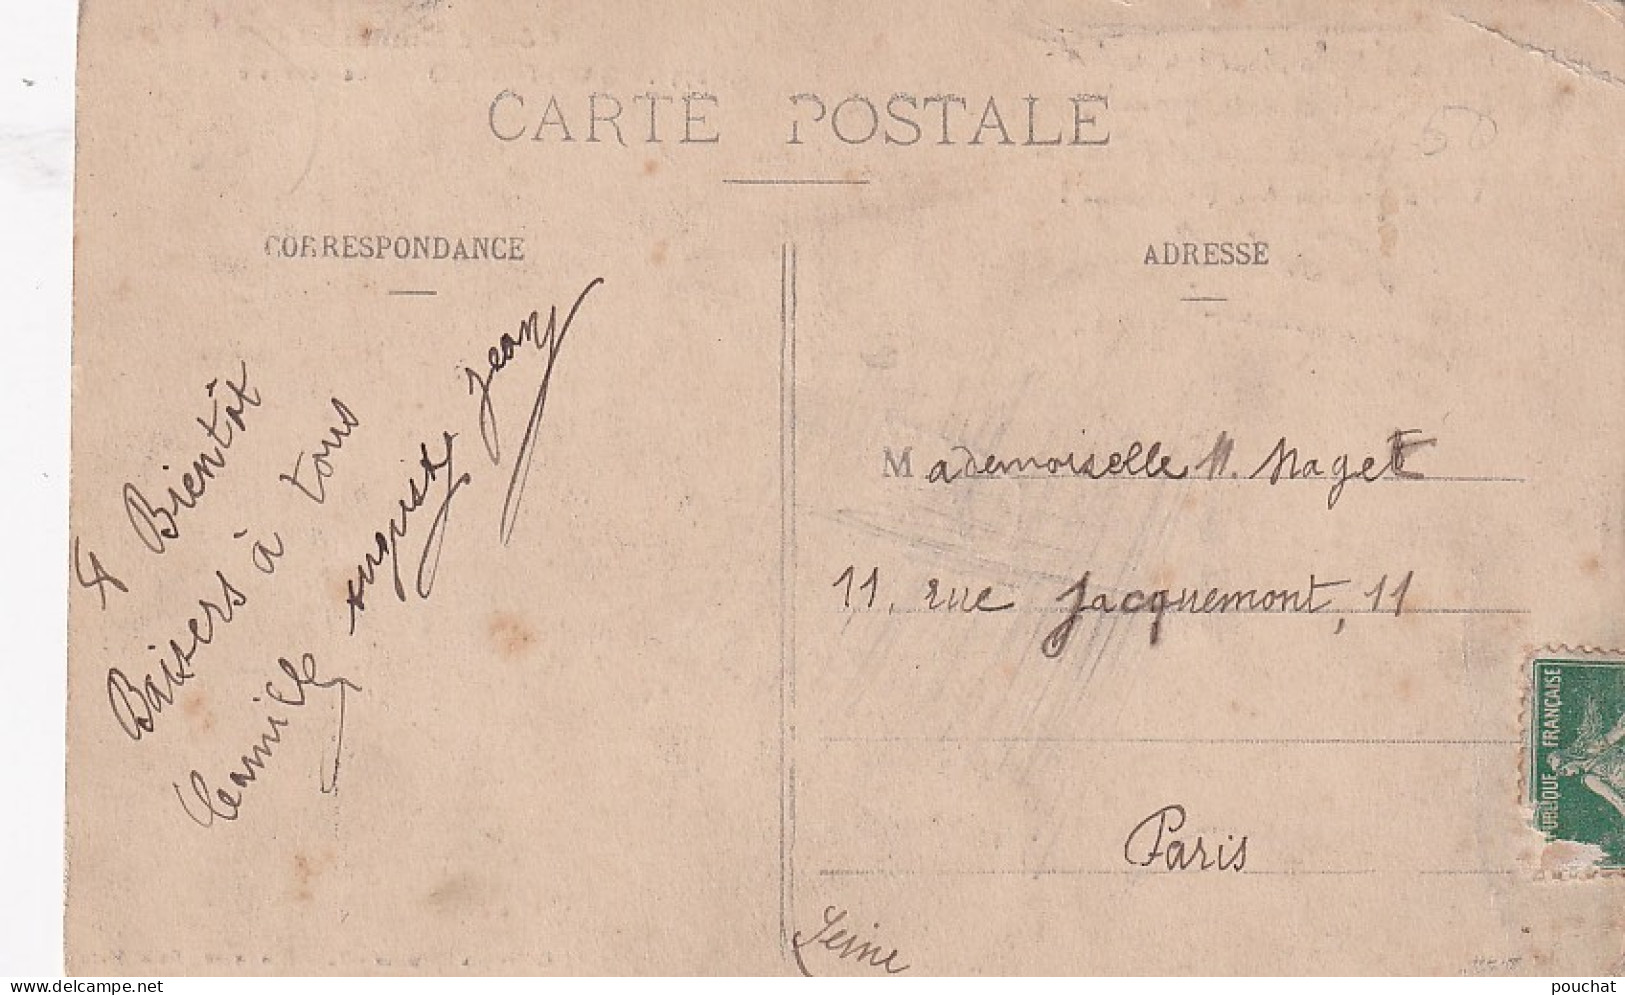 CARTE POSTALE
50
CORRESPONDANCE
A Bientôt
Baisers à tous
Camille Auguste Jean
ADRESSE
Mademoiselle M. Maget
11, rue Jacquemont, 11
Paris
Seine
RÉPUBLIQUE FRANÇAISE
pouchat